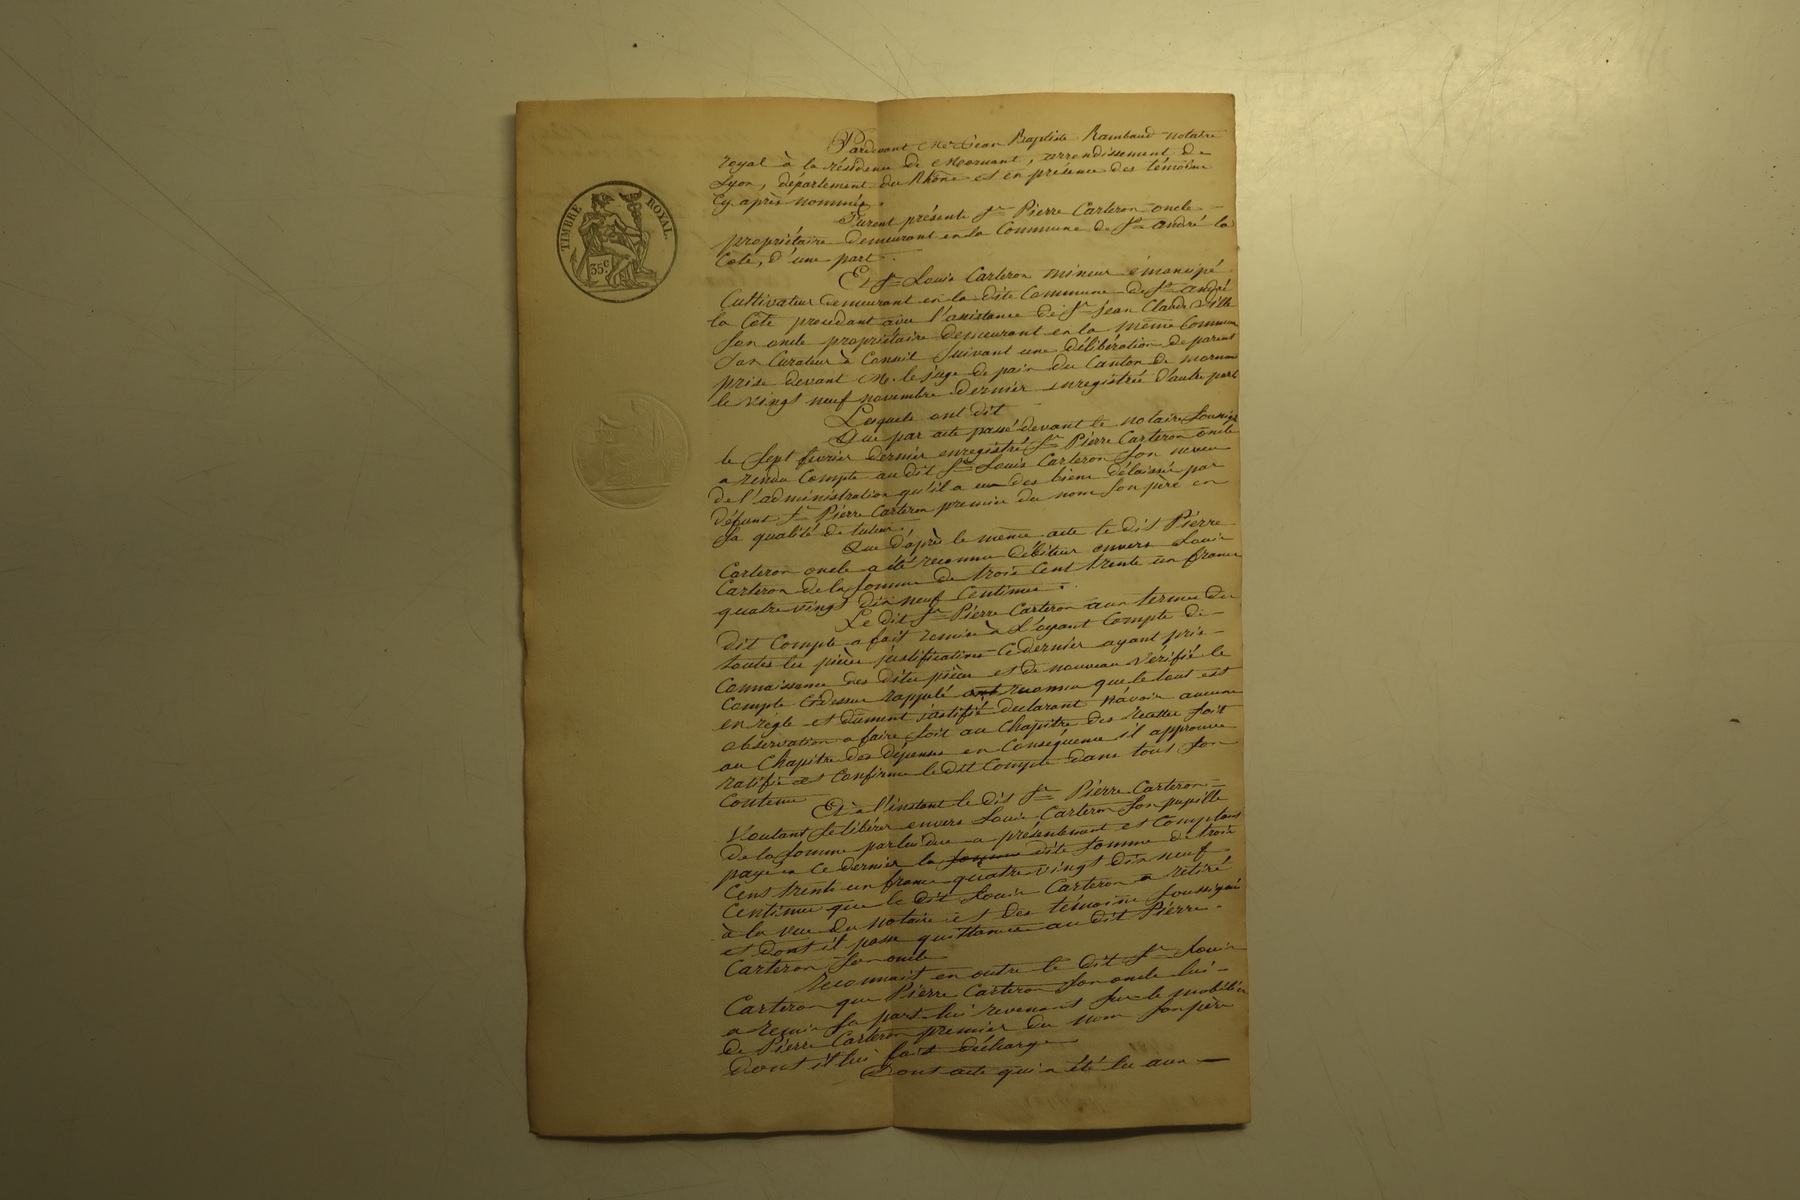 TIMBRE ROYAL.
35 c
Pardevant Me Jean Baptiste Rambaud notaire
royal à la résidence de Mornant, arrondissement de
Lyon, département du Rhône et en présence des témoins
cy après nommés.
Furent présents Sr Pierre Carteron oncle
propriétaire demeurant en la Commune de St andré la
Côte, d'une part.
Et Sr Louis Carteron mineur émancipé
Cultivateur demeurant en la dite Commune de St andré
la Côte procédant avec l'assistance de Sr Jean Claude
son oncle propriétaire demeurant en la même Commune
son Curateur à Conseil suivant une délibération de parents
prise devant Mr. le juge de paix du Canton de mornant
le vingt neuf novembre dernier enregistrée d'autre part
Lesquels ont dit
Que par acte passé devant le notaire soussigné
le sept fevrier dernier enregistré Sr Pierre Carteron oncle
a rendu Compte au dit Sr Louis Carteron son neveu
de l'administration qu'il a eue des biens délaissés par
défunt Sr Pierre Carteron premier du nom son père en
sa qualité de tuteur.
Que d'après le même acte le dit Pierre
Carteron oncle a été reconnu débiteur envers Louis
Carteron de la somme de trois Cent trente un francs
quatre vingt dix neuf Centimes.
Le dit Sr Pierre Carteron aux termes du
dit Compte a fait remise à L'oyant Compte de
toutes les pièces justificatives Ce dernier ayant pris
Connaissance des dites pièces et de nouveau vérifié le
Compte Cidessus rappelé ont reconnu que le tout est
en règle et dûment justifié déclarant n'avoir aucune
observation a faire soit au Chapitre des recettes soit
au Chapitre des dépenses en Conséquence il approuve
ratifie et Confirme le dit Compte dans tous son
Contenu
Et à l'instant le dit Sr Pierre Carteron
Voulant se libérer envers Louis Carteron son pupille
de la somme par lui due a présentement et Comptant
payé à Ce dernier la somme dite somme de trois
Cent trente un francs quatre vingt dix neuf
Centimes que le dit Louis Carteron a retiré
à la vue du notaire et des témoins soussignés
et dont il passe quittance au dit Pierre
Carteron son oncle
reconnait en outre le dit Sr Louis
Carteron que Pierre Carteron son oncle lui
a remis sa part lui revenant sur le mobilier
de Pierre Carteron premier du nom son père
dont il lui fait décharge
Dont acte qui a été lu aux